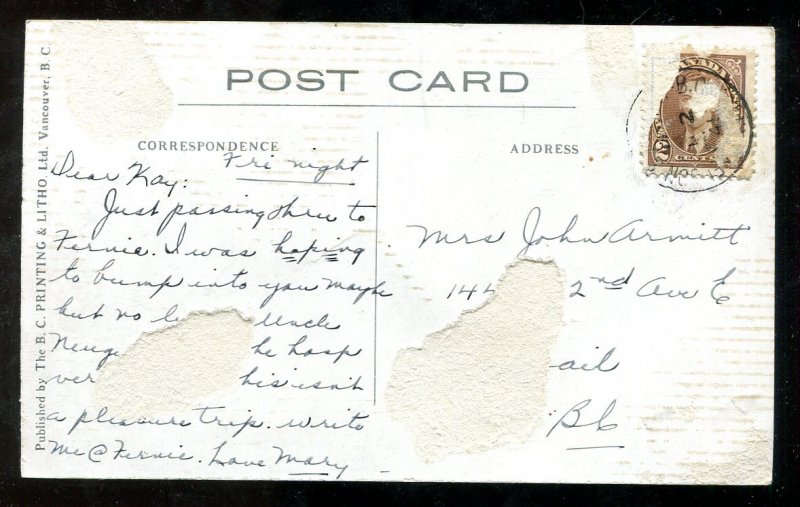 POST CARD
CORRESPONDENCE
ADDRESS
Published by The B.C. PRINTING & LITHO. Ltd. Vancouver, B. C.
Fri night
Dear Kay:
Just passing thru to
Fernie. I was hoping
to bump into you maybe
but no Uncle
he hosp
his isn't
a pleasure trip. write
me @ Fernie. Love Mary
Mrs John Armitt
2nd Ave E
ail
BC
B.C.
2
CENTS